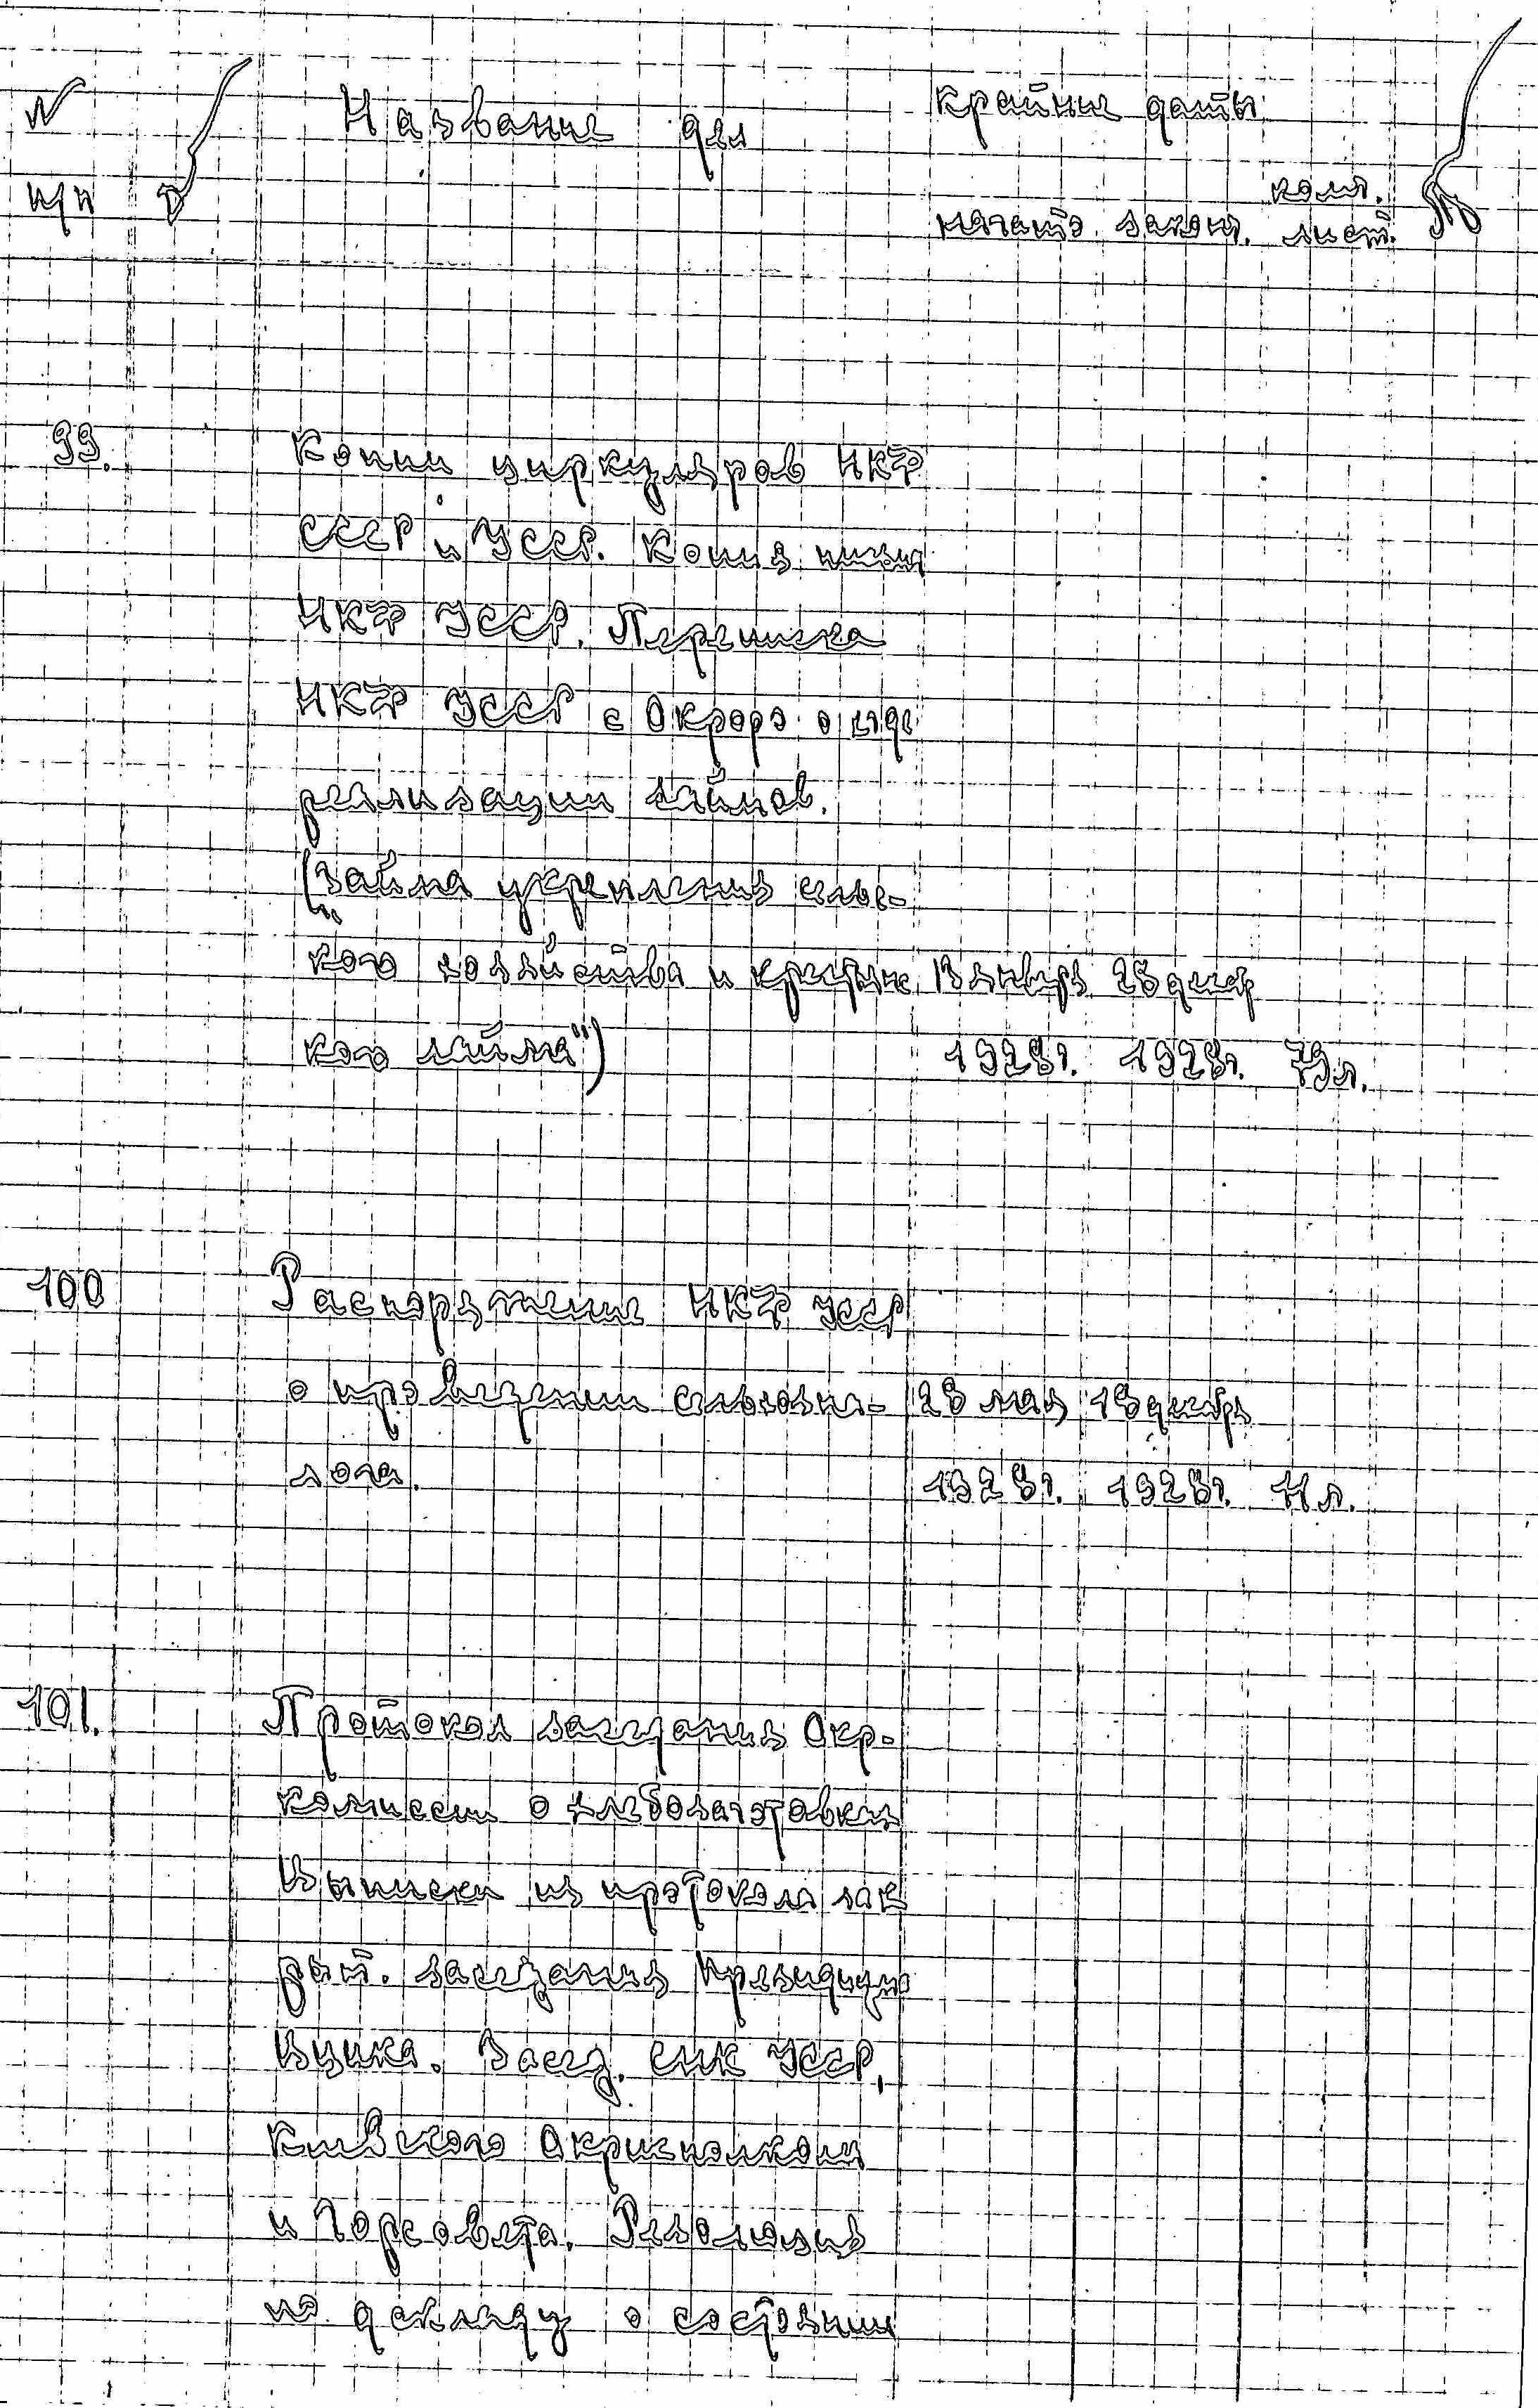 № Название дел Крайние даты
п/п колич.
начато законч. лист.
99. Копии циркуляров НКФ
СССР и УССР. Копия письма
НКФ УССР. Переписка
НКФ УССР с Окрфо о ходе
реализации займов.
("Займа укрепления сельс-
кого хозяйства и крестьянс 13 январь 28 декабр
кого займа") 1928г. 1928г. 79 л.
100 Распоряжение НКФ УССР
о проведении сельхозна- 28 мая 18 декабрь
лога. 1928г. 1928г. 11 л.
101. Протокол заседания Окр-
комиссии о хлебозаготовках
Выписки из протокола зак
рыт. заседания Президиума
Вуцика. Засед. СНК УССР,
Киевского Окрисполкома
и Горсовета. Резолюция
по докладу о состоянии